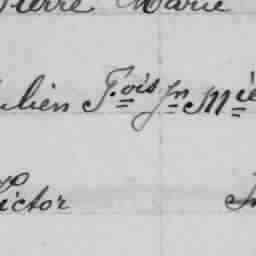 Pierre Marie
Julien F.ois Jn Mie
Victor